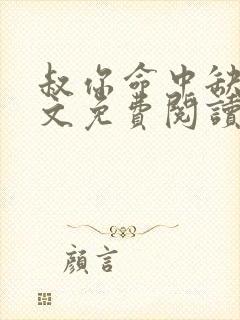 叔你命中缺
文免費閱讀
顏言